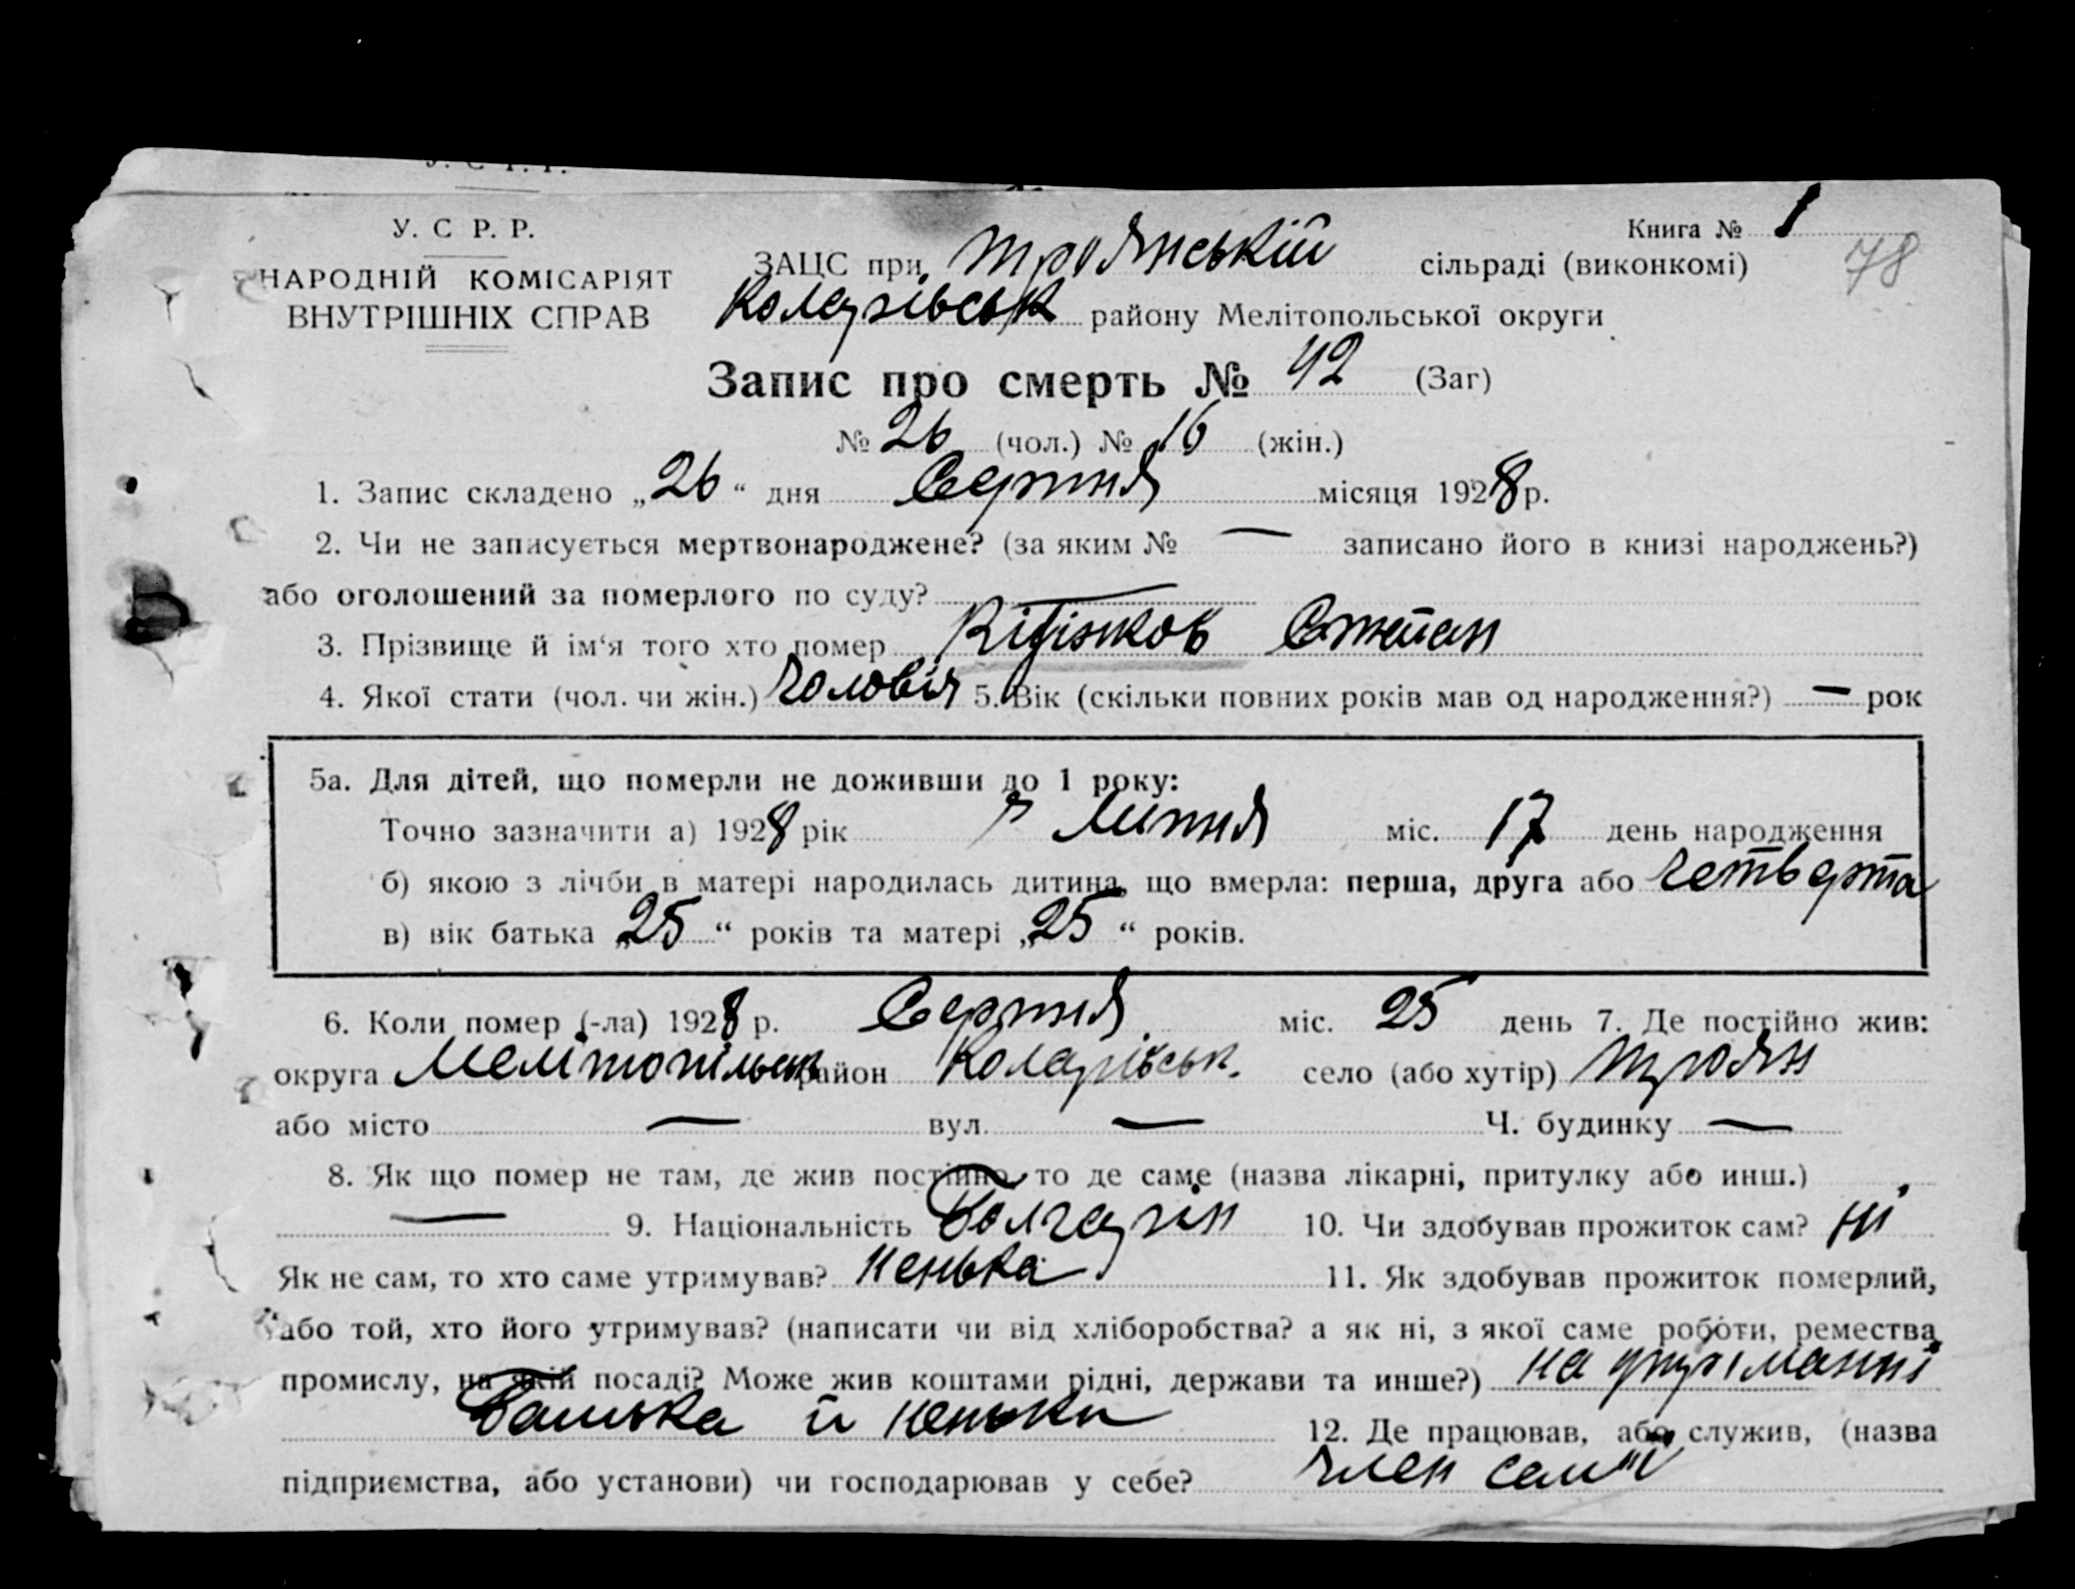 У. С Р. Р.
НАРОДНІЙ КОМІСАРІЯТ
ВНУТРІШНІХ СПРАВ
Книга № 1
78
ЗАЦС при Троянській сільраді (виконкомі)
Коларівськ району Мелітопольської округи
Запис про смерть № 42 (Заг)
№ 26 (чол.) № 16 (жін.)
1. Запис складено „26“ дня Серпня місяця 1928 р.
2. Чи не записується мертвонароджене? (за яким № — записано його в книзі народжень?)
або оголошений за померлого по суду? —
3. Прізвище й ім‘я того хто помер Степан
4. Якої стати (чол. чи жін.) 5. Вік (скільки повних років мав од народження?) — рок
5а. Для дітей, що померли не доживши до 1 року:
Точно зазначити а) 1928 рік Липня міс. 17 день народження
б) якою з лічби в матері народилась дитина, що вмерла: перша, друга або четверта
в) вік батька „25“ років та матері „25“ років.
6. Коли помер (-ла) 1928 р. Серпня міс. 25 день 7. Де постійно жив:
округа Мелітопільськ район Коларівськ. село (або хутір) Троян
або місто — вул. — Ч. будинку —
8. Як що помер не там, де жив постійно то де саме (назва лікарні, притулку або инш.)
— 9. Національність Болгарін 10. Чи здобував прожиток сам? ні
Як не сам, то хто саме утримував? ненька 11. Як здобував прожиток померлий,
або той, хто його утримував? (написати чи від хліборобства? а як ні, з якої саме роботи, ремества
промислу, на якій посаді? Може жив коштами рідні, держави та инше?) на утріманні
Батька й неньки 12. Де працював, або служив, (назва
підприємства, або установи) чи господарював у себе? член семʼї